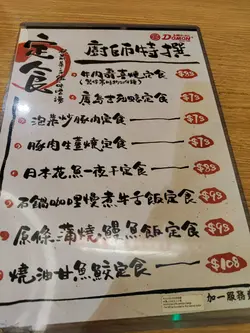 廚師特撰
定食
牛肉壽喜燒定食 $83
廣島吉列蠔定食 $73
泡菜炒豚肉定食 $73
豚肉生薑燒定食 $73
日本花魚一夜干定食 $83
石鍋咖哩慢煮牛舌飯定食 $93
原條蒲燒鰻魚飯定食 $93
燒油甘魚鮫定食 $108
加一服務